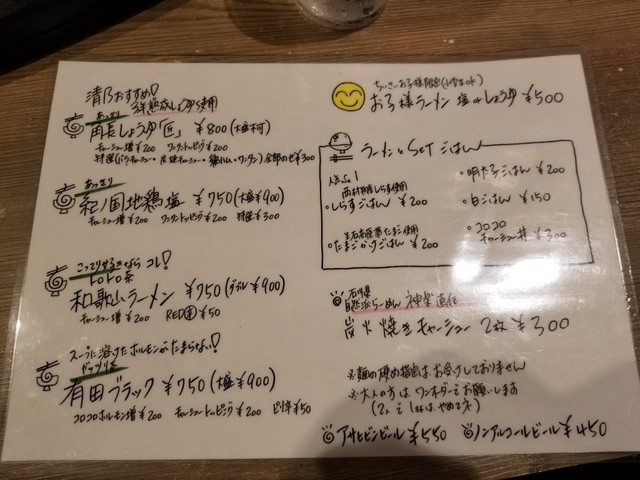 清乃おすすめ!
三年熟成しょうゆ使用
あっさり
角長しょうゆ「匠」 ¥800(大盛不可)
チャーシュー増 ¥200 ワンタントッピング ¥200
あっさり
紀ノ国地鶏塩 ¥750(大盛¥900)
チャーシュー増 ¥200 ワンタントッピング ¥200 特選 ¥300
こってりせめるなら コレ!
トロトロ系
和歌山ラーメン ¥750(ダブル¥900)
チャーシュー増 ¥200 RED ¥50
スープに溶けたホルモンがたまらない!
ガッツリ系
有田ブラック ¥750(大盛¥900)
コロコロホルモン増 ¥200 チャーシュートッピング ¥200 ピリ辛 ¥50
ちいさいお子様限定(小学生ok)
お子様ラーメン 塩 or しょうゆ ¥500
ラーメンとSETごはん
人気No.1
西村物産しらす使用
・しらすごはん ¥200
たまご使用
・たまごかけごはん ¥200
・明太子ごはん ¥200
・白ごはん ¥150
・コロコロ
チャーシュー丼 ¥300
石川県
自然派らーめん 神楽直伝
炭火焼きチャーシュー 2枚 ¥300
※麺の硬め指定はお受けしておりません
※大人の方は ワンオーダーでお願いします
(2人で1杯は やめてネ)
アサヒビンビール ¥550 ノンアルコールビール ¥450